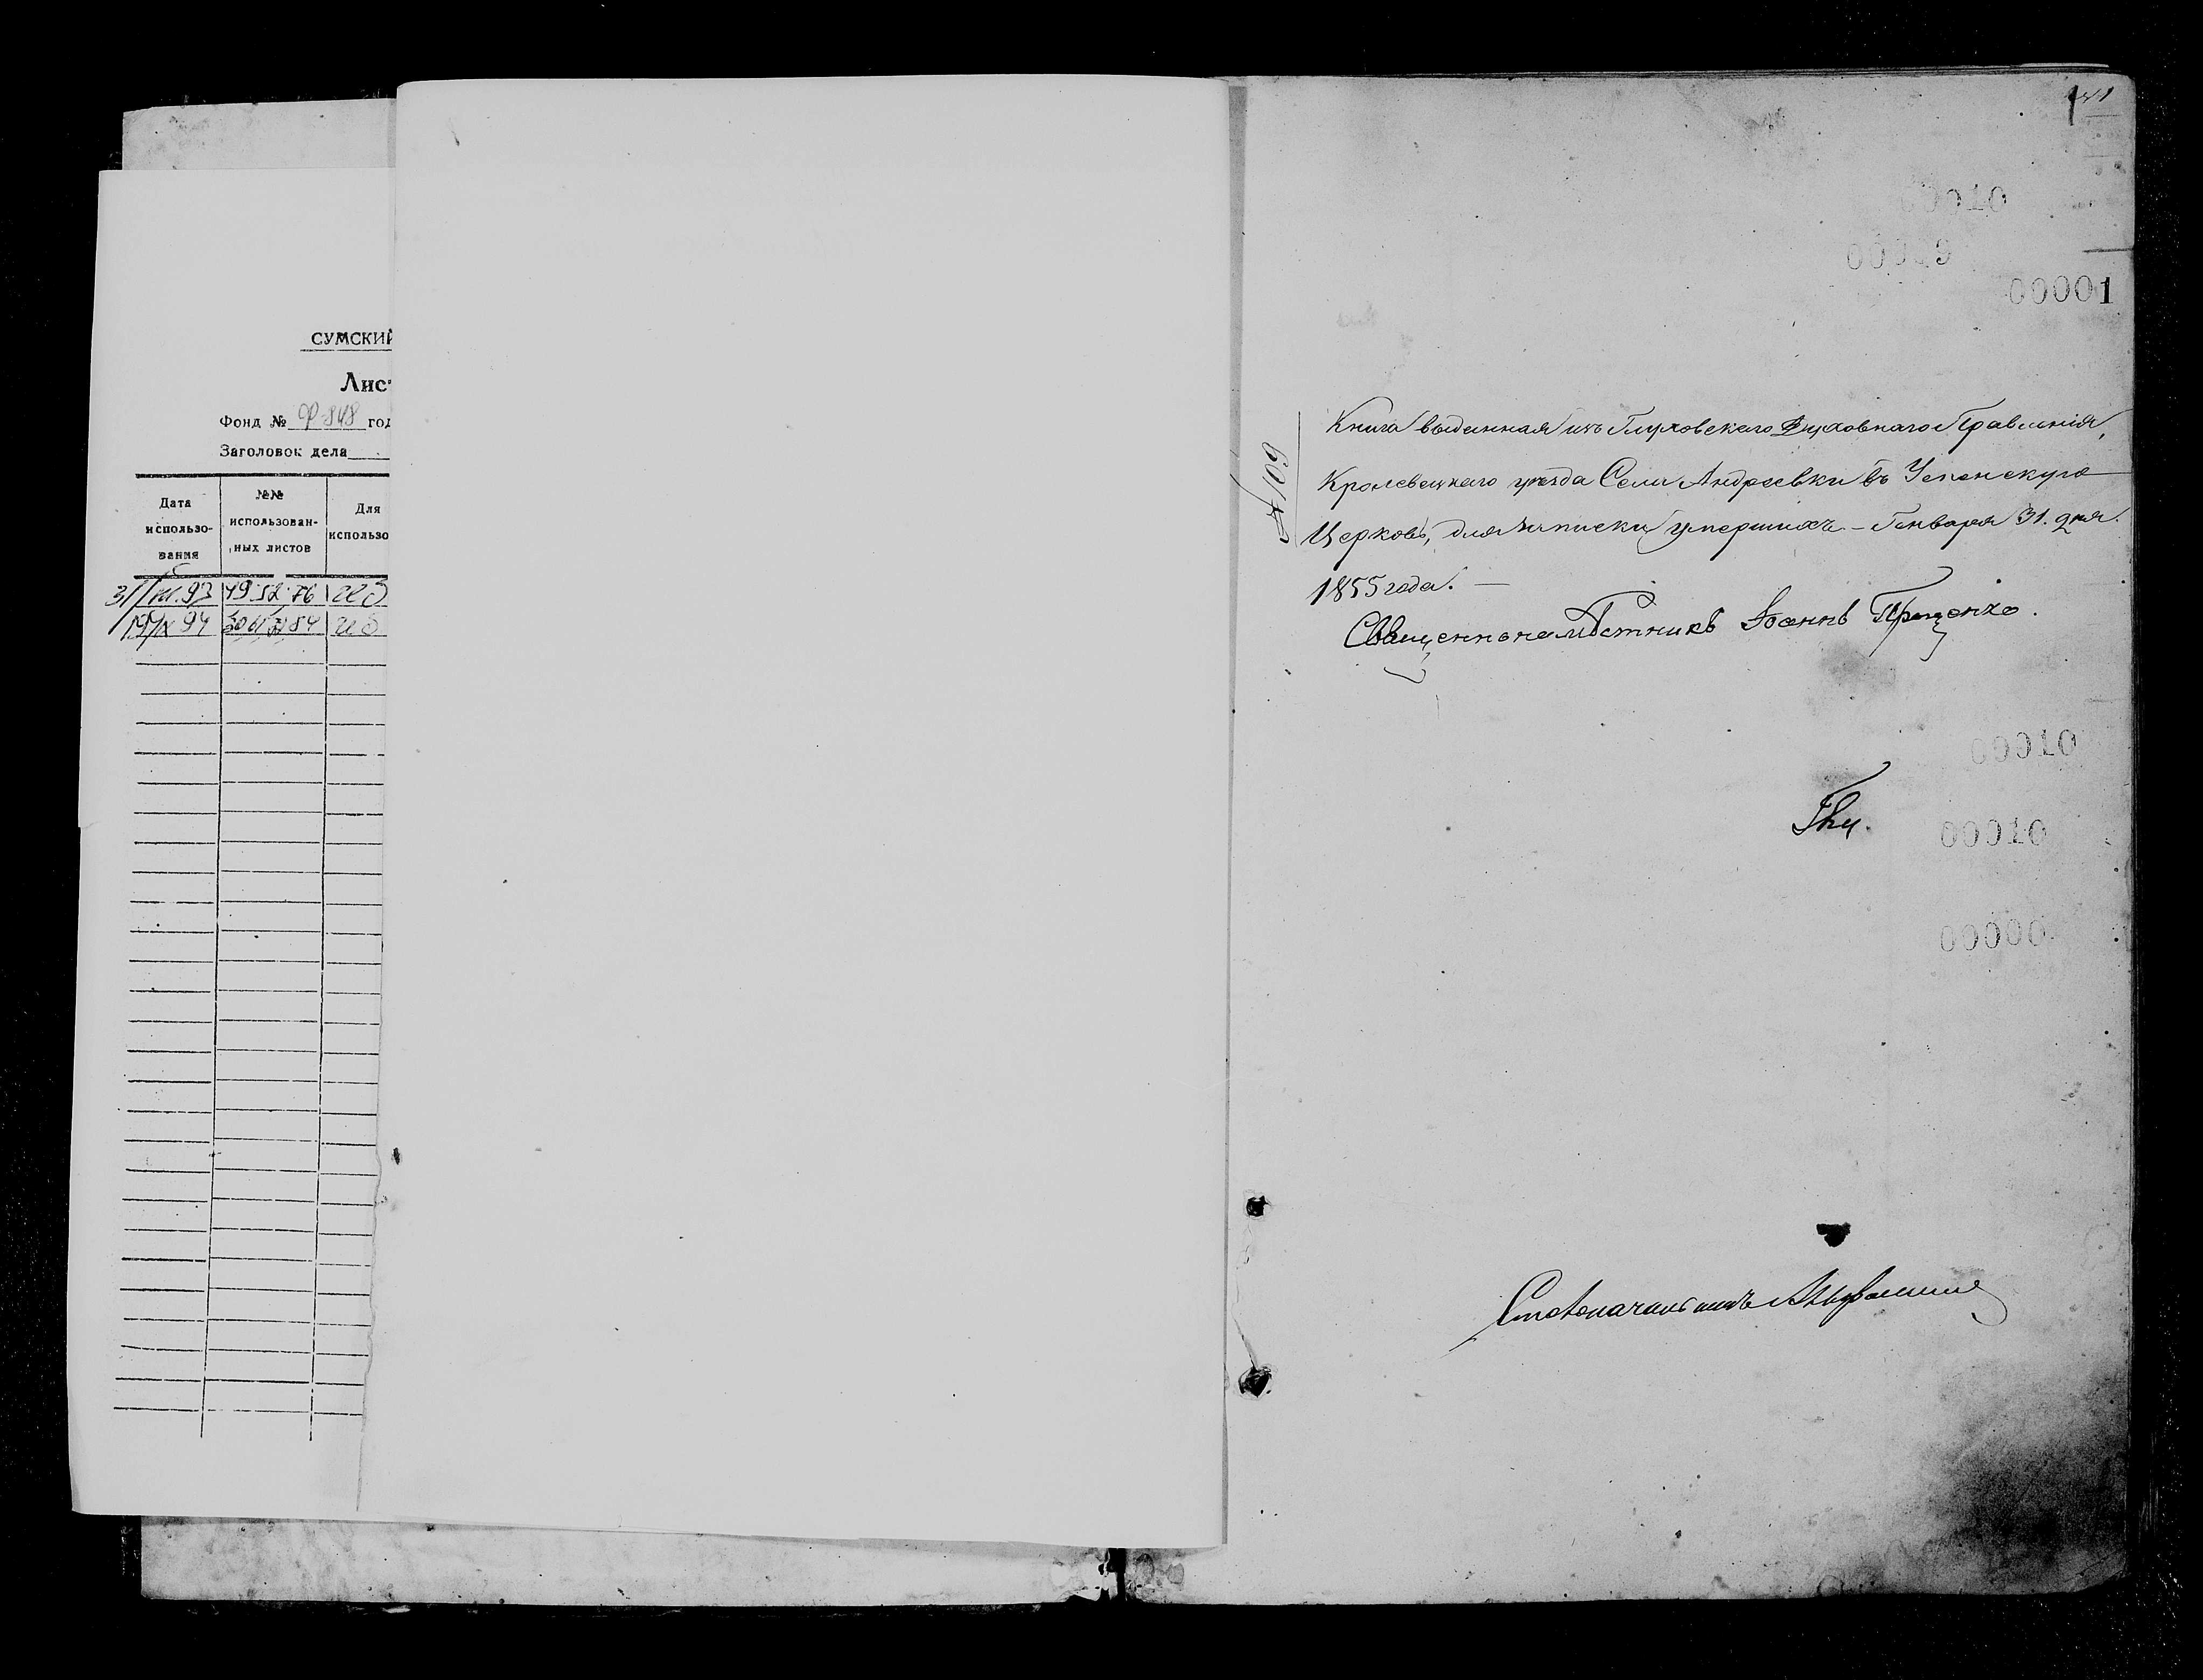 СУМСКИЙ
Лист
Фонд № Ф-848 год
Заголовок дела
Дата использо- вания
№№ использован- ных листов
Для использо
49 52 76
94
1
00010
00001
№ 109
Книга выданная изъ Глуховскаго Духовнаго Правленія,
Кролевецкаго уѣзда Села Андреевки въ Успенскую
Церковь, для записки умершихъ – Генваря 31. дня.
1855 года. —
Іоаннъ Проценко.
00010
00010
00000
Столоначальникъ